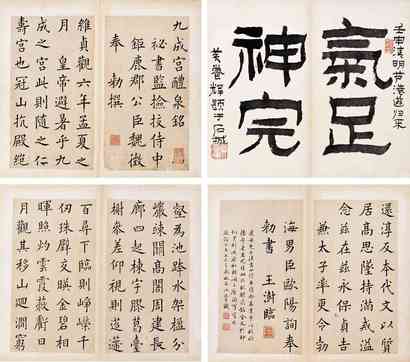 九成宮醴泉銘
祕書監檢挍侍中
鉅鹿郡公臣魏徵
奉 勑撰
維貞觀六年孟夏之
月皇帝避暑乎九
成之宮此則隨之仁
壽宮也冠山抗殿絕
氣足
神完
壑為池跨水架楹分
巖竦闕高閣周建長
廊四起棟宇膠葛臺
榭參差仰視則迢遰
百尋下臨則崢嶸千
仞珠壁交映金碧相
暉照灼雲霞蔽虧日
月觀其移山迴澗窮
還淳反本代文以質
居高思墜持滿戒溢
念茲在茲永保貞吉
兼太子率更令勃
海男臣歐陽詢奉
勑書 王澍臨